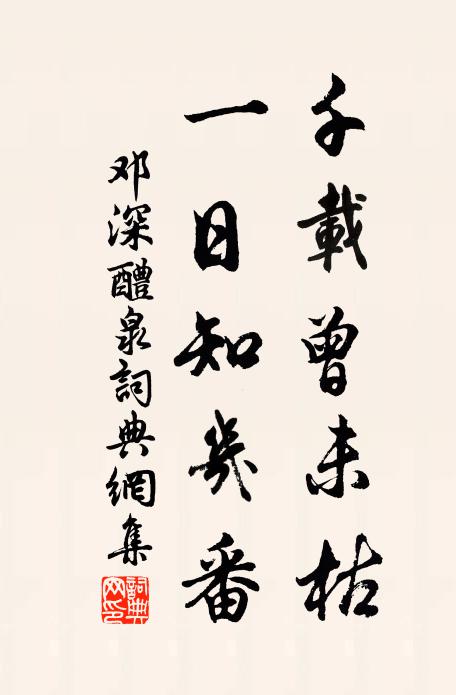 千載曾未枯
一日知幾番
邓深醴泉詞典網集
詞典網印